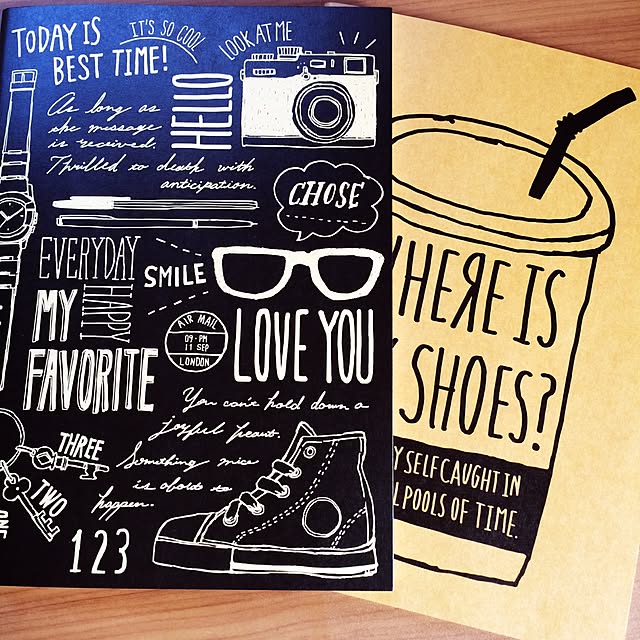 TODAY IS
BEST TIME!
IT'S SO COOL
LOOK AT ME
HELLO
As long as
she message
is received,
Thrilled to death with
anticipation.
CHOSE
EVERYDAY
HAPPY
SMILE
MY
FAVORITE
AIR MAIL
09·PM
11 SEP
LONDON
LOVE YOU
You can't hold down a
joyful heart.
Something nice
is about to
happen.
THREE
TWO
ONE
123
HERE IS
SHOES?
Y SELF CAUGHT IN
L POOLS OF TIME.